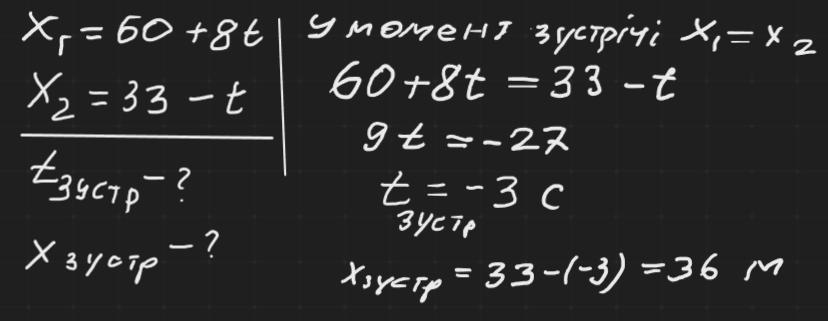 x₁ = 60 + 8t
x₂ = 33 - t
t зустр - ?
x зустр - ?
У момент зустрічі x₁ = x₂
60 + 8t = 33 - t
9t = -27
t зустр = -3 с
x зустр = 33 - (-3) = 36 м